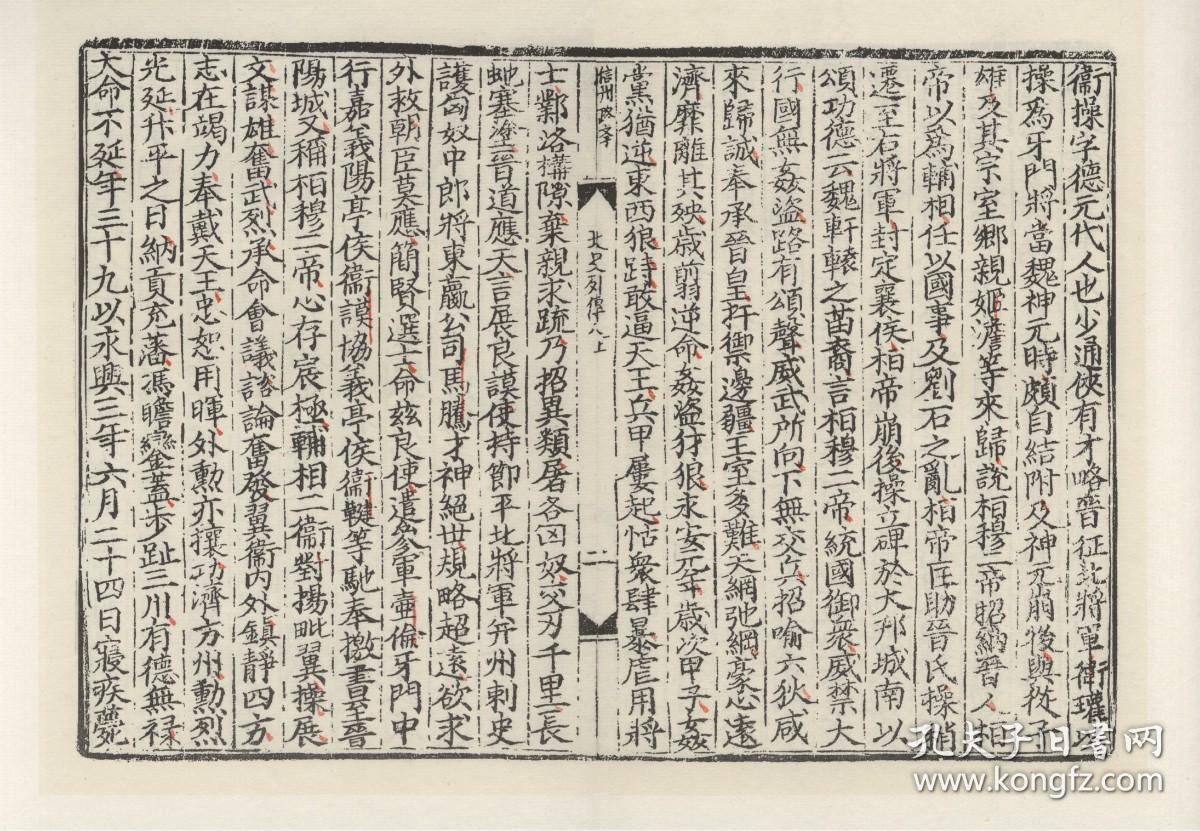 衞操字德元代人也少通俠有才略晉征北將軍衛瓘以
操爲牙門將當魏神元時頗自結附及神元崩後與從子
雄及其宗室鄉親姬澹等來歸說桓穆二帝招納晉人桓
帝以爲輔相任以國事及劉石之亂桓帝匡助晉氏操稍
遷至右將軍封定襄侯桓帝崩後操立碑於大邗城南以
頌功德云魏軒轅之苗裔言桓穆二帝統國御衆威禁大
行國無姦盜路有頌聲威武所向下無交兵招喻六狄咸
來歸誠奉承晉皇扞禦邊疆王室多難天網弛綱豪心遠
濟靡離其殃歲翦逆命姦盜豺狼永安元年歲次甲子姦
黨猶逆東西狼跱敢逼天王兵甲屢起怙衆肆暴虐用將
信州路李
北史列傳八上
二
士鄴洛構隙棄親求疏乃招異類屠各匈奴交刃千里長
虵塞塗晉道應天言展良謨使持節平北將軍并州刺史
護匈奴中郎將東嬴公司馬騰才神絕世規略超遠欲求
外救朝臣莫應簡賢選士命茲良使遣參軍壺倫牙門中
行嘉義陽亭侯衞謨協義亭侯衞鞬等馳奉檄書至晉
陽城又稱桓穆二帝心存宸極輔相二衞對揚毗翼操展
文謀雄奮武烈承命會議諮論奮發翼衞內外鎮靜四方
志在竭力奉戴天王忠恕用暉外勲亦攘功濟方州勲烈
光延升平之日納貢充藩馮瞻鑾蓋步趾三川有德無祿
大命不延年三十九以永興三年六月二十四日寢疾薨
孔夫子旧书网
www.kongfz.com